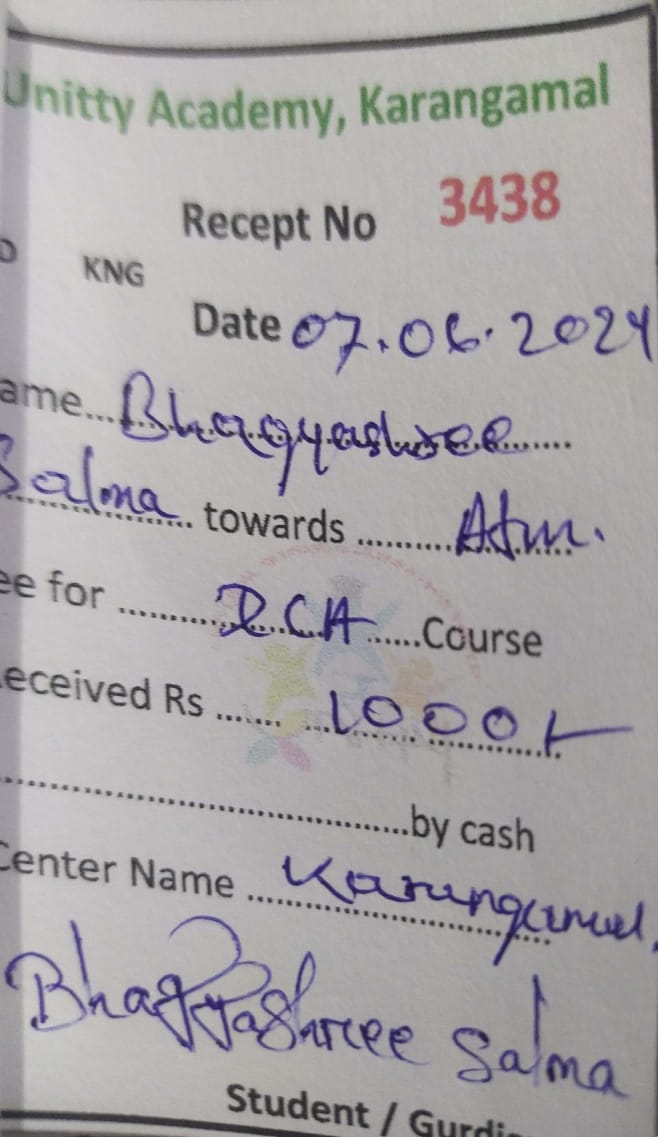 Unitty Academy, Karangamal
Recept No 3438
KNG
Date 07.06.2024
ame... Bhagyashree ......
Salma ... towards .......... Adm.
ee for ............ DCA ......Course
eceived Rs ....... 1000/-
..........by cash
Center Name ... Karangamal.
Bhagyashree Salma
Student / Gurdi